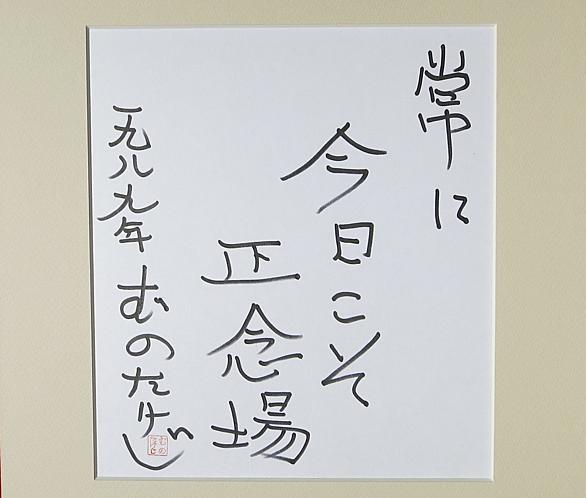 常に
今日こそ
正念場
一九八九年 むのたけじ
むの
たけじ